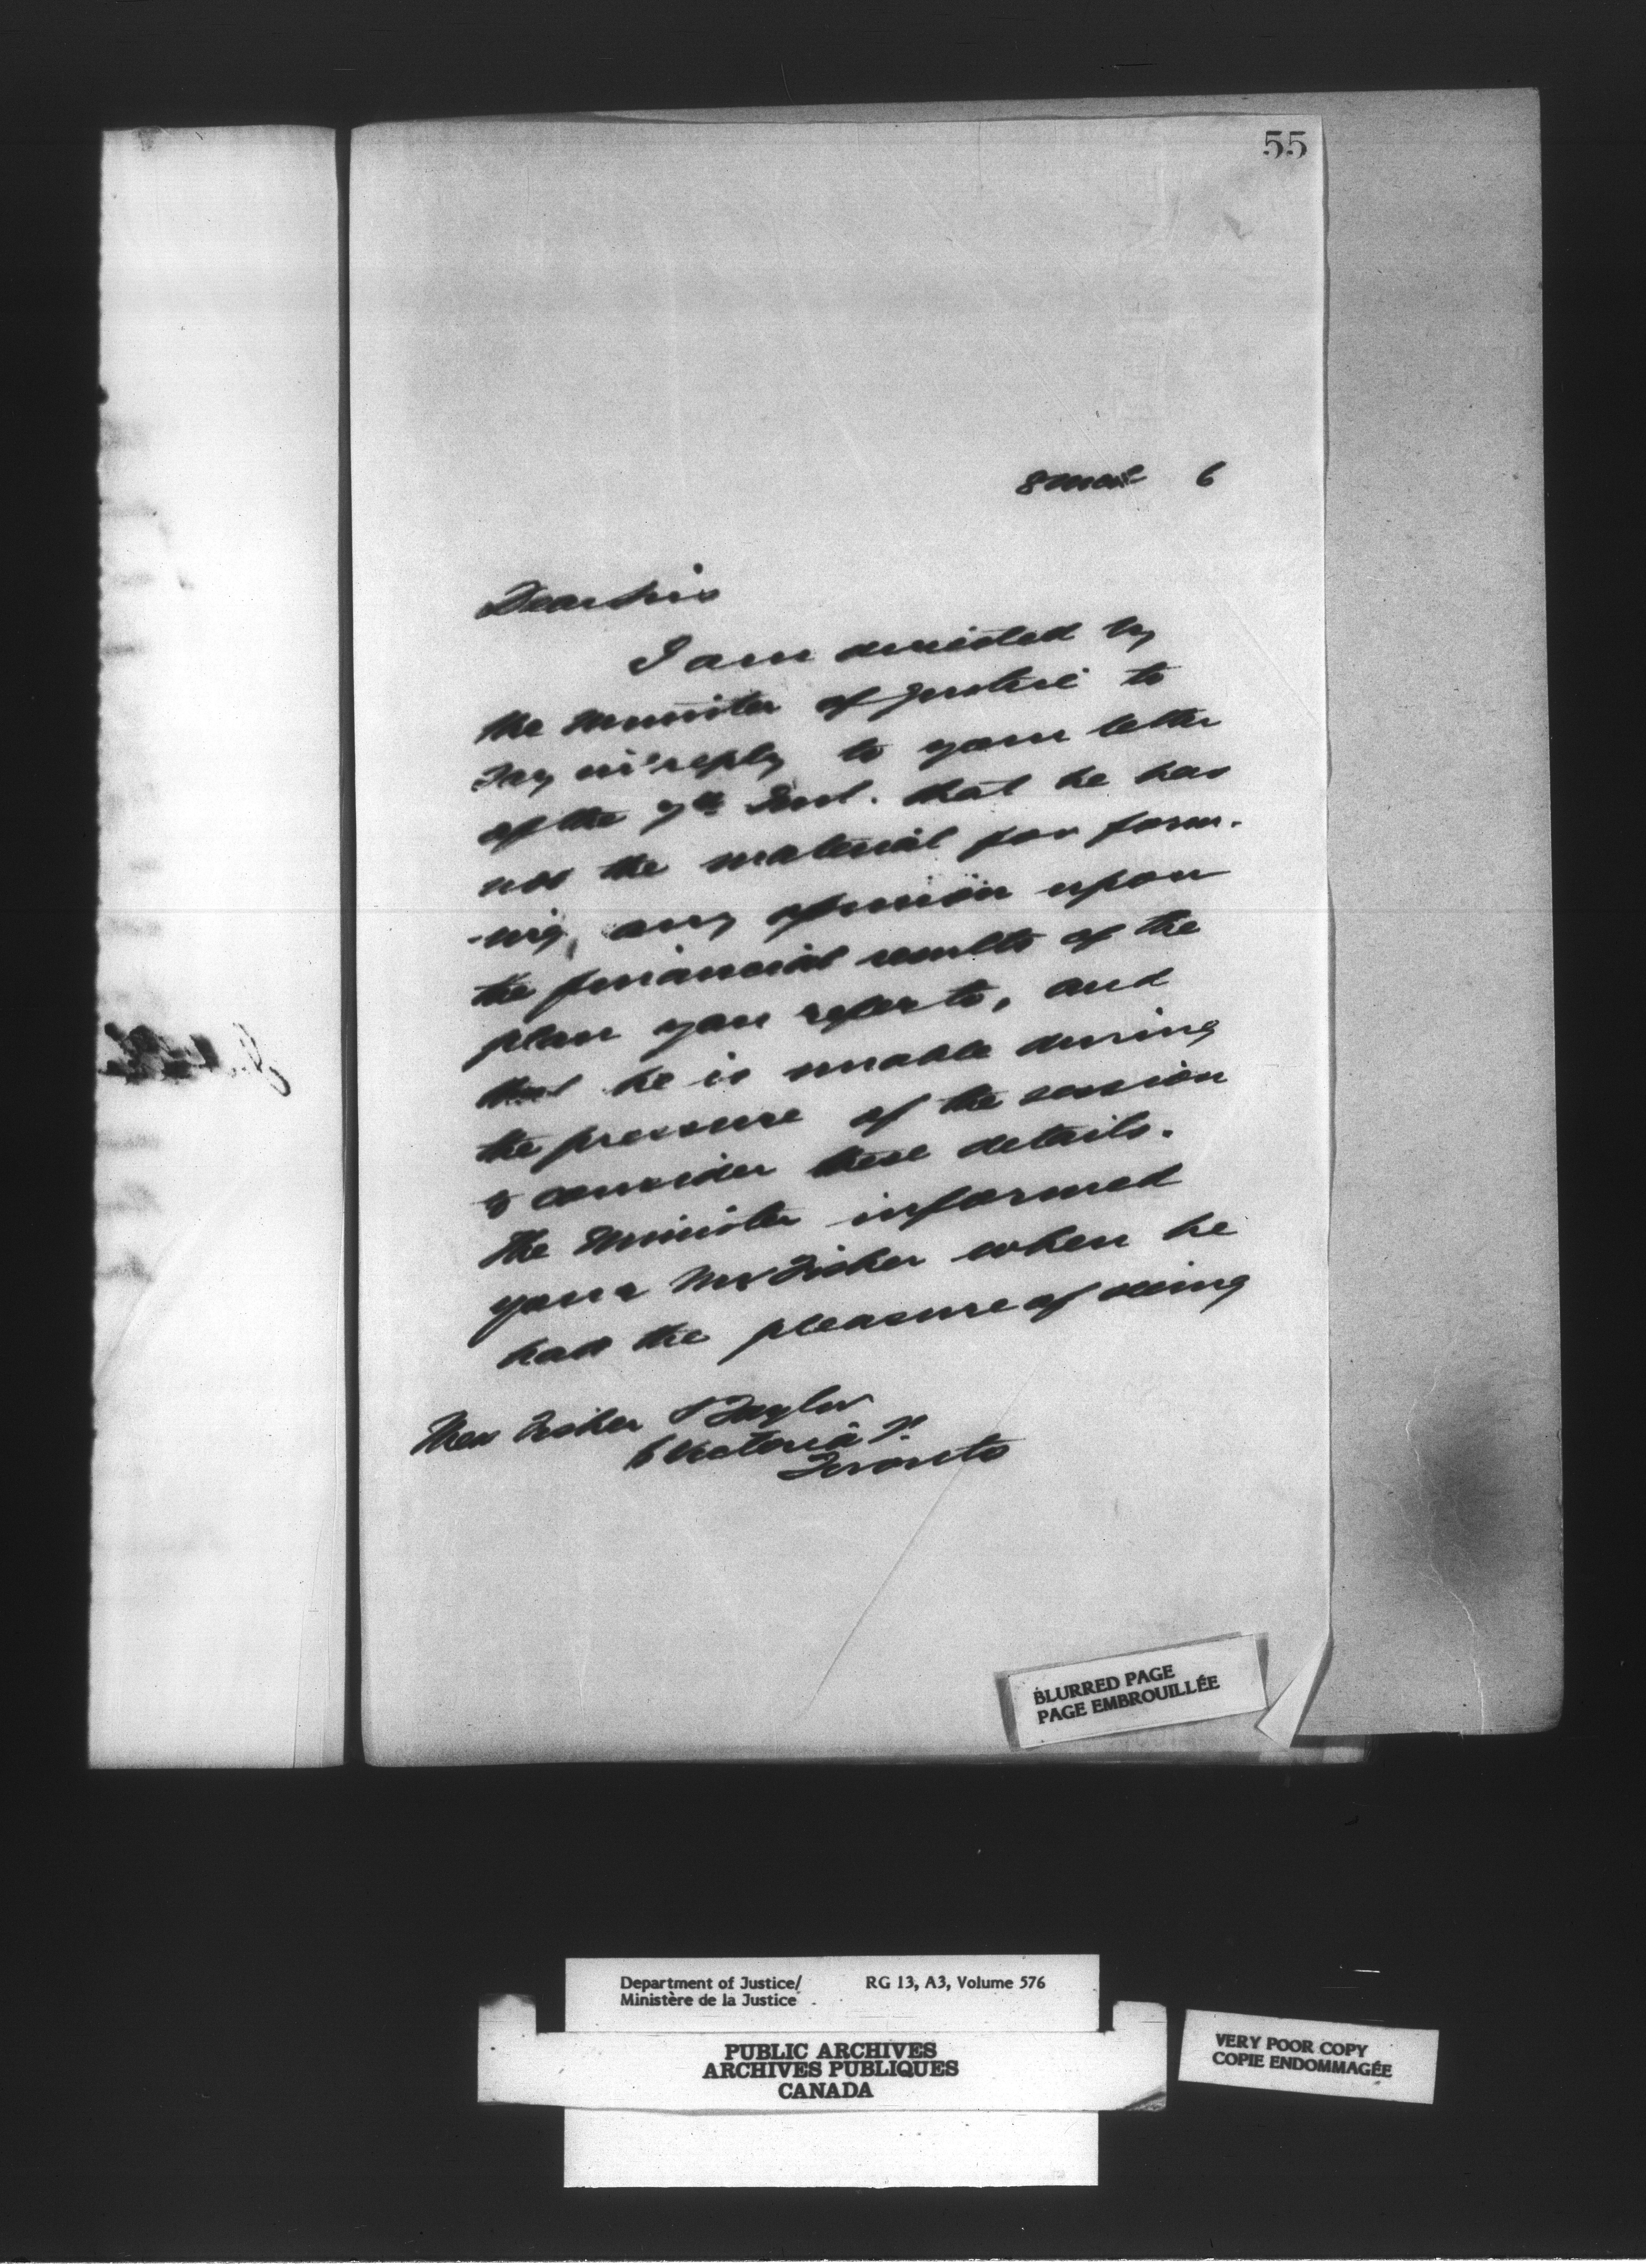 55
8 Mar 6
Dear Sirs
I am directed by
the Minister of Justice to
say in reply to your letter
of the 7th Inst. that he has
not the material for form-
-ing any opinion upon
the financial results of the
plan you refer to, and
that he is unable during
the pressure of the session
to consider these details.
The Minister informed
your Mr Fisher when he
had the pleasure of seeing
Mess Fisher & Taylor
6 Victoria St.
Toronto
BLURRED PAGE
PAGE EMBROUILLÉE
Department of Justice/ RG 13, A3, Volume 576
Ministère de la Justice
PUBLIC ARCHIVES
ARCHIVES PUBLIQUES
CANADA
VERY POOR COPY
COPIE ENDOMMAGÉE